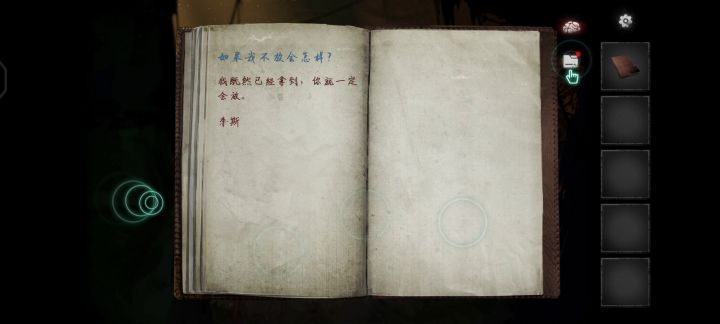 如果我不放会怎样?
我既然已经拿到，你就一定
会放。
李斯